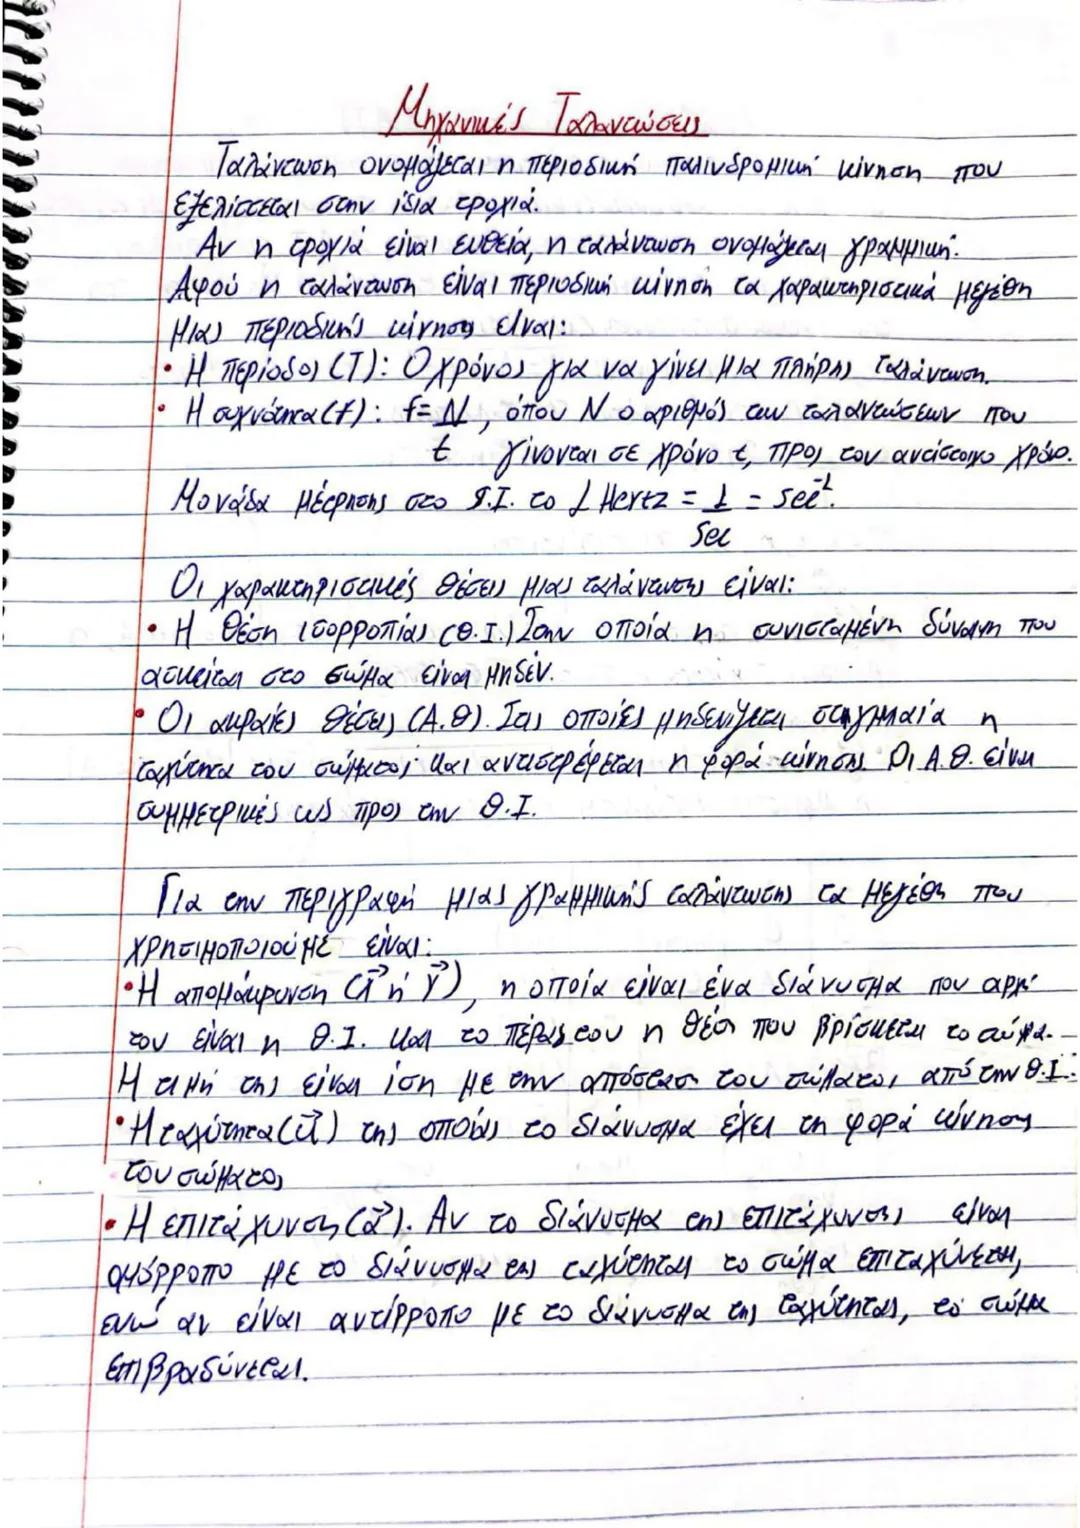 Μηχανικές Ταλαντώσεις
Ταλάντωση ονομάζεται η περιοδική παλινδρομική κίνηση που
εξελίσσεται στην ίδια τροχιά.
Αν η τροχιά είναι ευθεία, η ταλάντωση ονομάζεται γραμμική.
Αφού η ταλάντωση είναι περιοδική κίνηση τα χαρακτηριστικά μεγέθη
μιας περιοδικής κίνησης είναι:
• Η περίοδος (T): Ο χρόνος για να γίνει μια πλήρης ταλάντωση.
• Η συχνότητα (f): f = N/t, όπου N ο αριθμός των ταλαντώσεων που
γίνονται σε χρόνο t, προς τον αντίστοιχο χρόνο.
Μονάδα μέτρησης στο S.I. το 1 Hertz = 1/sec = sec⁻¹.
Οι χαρακτηριστικές θέσεις μιας ταλάντωσης είναι:
• Η θέση ισορροπίας (Θ.Ι.) Στην οποία η συνισταμένη δύναμη που
ασκείται στο σώμα είναι μηδέν.
• Οι ακραίες θέσεις (Α.Θ). Στις οποίες μηδενίζεται στιγμιαία η
ταχύτητα του σώματος και αντιστρέφεται η φορά κίνησης Οι Α.Θ. είναι
συμμετρικές ως προς την Θ.Ι.
Για την περιγραφή μιας γραμμικής ταλάντωσης τα μεγέθη που
χρησιμοποιούμε είναι:
• Η απομάκρυνση (x⃗ ή y⃗), η οποία είναι ένα διάνυσμα που αρχή
του είναι η Θ.Ι. και το πέρας του η θέση που βρίσκεται το σώμα.
Η τιμή της είναι ίση με την απόσταση του σώματος από την Θ.Ι.
• Η ταχύτητα (u⃗) της οποίας το διάνυσμα έχει τη φορά κίνησης
του σώματος
• Η επιτάχυνση (α⃗). Αν το διάνυσμα της επιτάχυνσης είναι
ομόρροπο με το διάνυσμα της ταχύτητας το σώμα επιταχύνεται,
ενώ αν είναι αντίρροπο με το διάνυσμα της ταχύτητας, το σώμα
επιβραδύνεται.